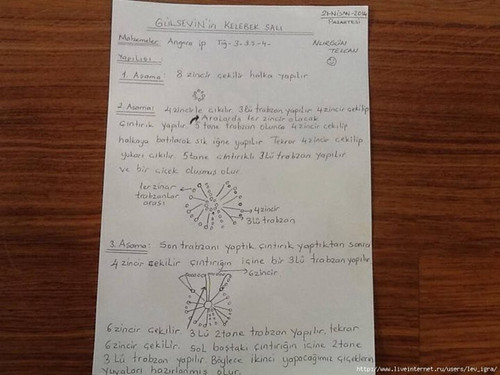 GÜLSEVİN'in KELEBEK ŞALI
21-NİSAN-2014
PAZARTESİ
Malzemeler: Angora ip Tığ-3-3.5-4-
NURGÜN TEZCAN
Yapılışı:
1. Aşama: 8 zincir çekilip halka yapılır
2. Aşama: 4 zincirle çıkılır 3lü trabzan yapılır 4 zincir çekilip
Aralarda 1er zincir olacak
çıntırık yapılır 5 tane trabzan olunca 4 zincir çekilip
halkaya batılarak sık iğne yapılır. Tekrar 4 zincir çekilip
yukarı çıkılır 5 tane çıntırıklı 3lü trabzan yapılır
ve bir çiçek oluşmuş olur
1er zincir
trabzanlar
arası
4 zincir
3lü trabzan
3. Aşama: Son trabzanı yaptık çıntırık yaptıktan sonra
4 zincir çekilir çıntırığın içine bir 3lü trabzan yapılır
6 zincir
6 zincir çekilir. 3 lü 2 tane trabzan yapılır. tekrar
6 zincir çekilir. sol baştaki çıntırığın içine 2 tane
3 lü trabzan yapılır. Böylece ikinci yapacağımız çiçeklerin
yuvaları hazırlanmış olur.
http://www.liveinternet.ru/users/lev_igra/